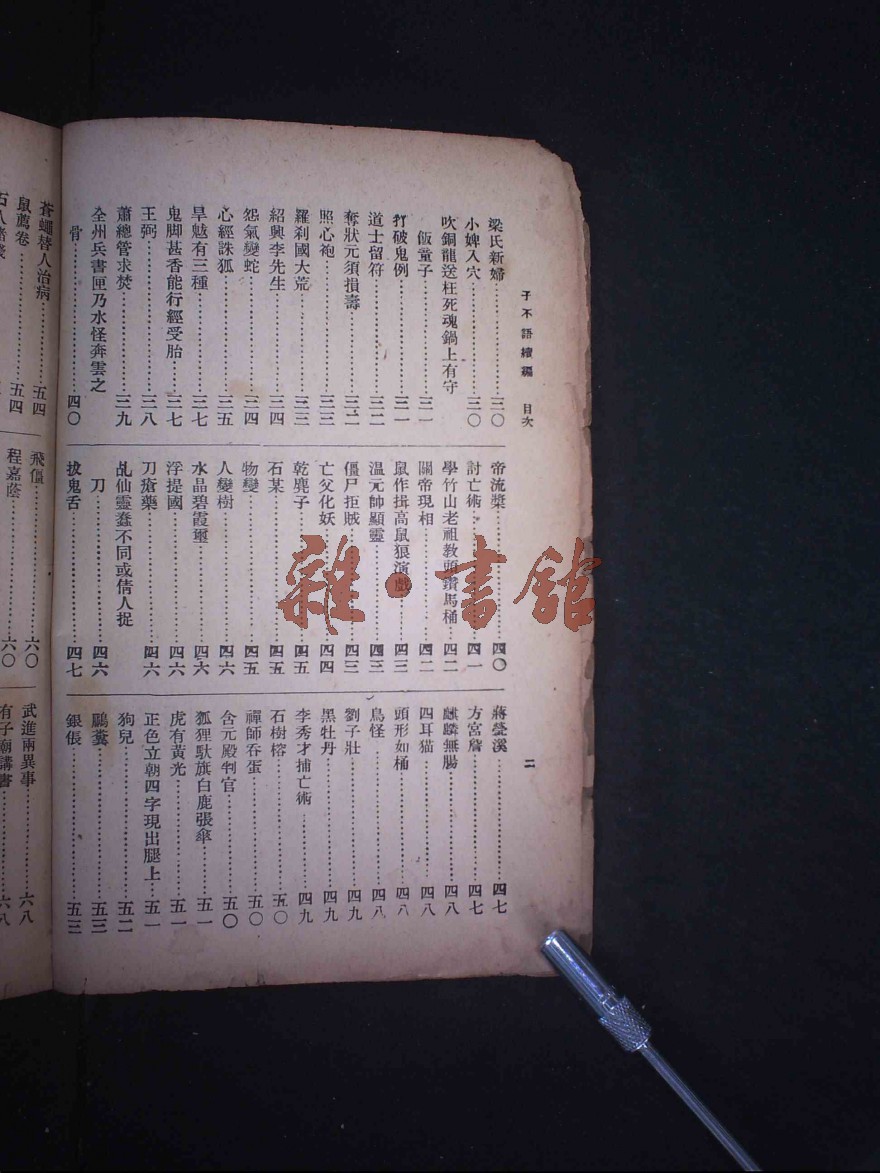 子不語續編　目次
二
梁氏新婦……………三〇
小婢入穴……………三〇
吹銅龍送枉死魂鍋上有守
飯童子……………三一
打破鬼例……………三一
道士留符……………三二
奪狀元須損壽……………三二
照心袍……………三三
羅刹國大荒……………三三
紹興李先生……………三四
怨氣變蛇……………三四
心經誅狐……………三五
旱魃有三種……………三七
鬼脚甚香能行經受胎……三七
王弼……………三八
蕭總管求焚……………三九
全州兵書匣乃水怪奔雲之
骨……………四〇
帝流槳……………四〇
討亡術……………四一
學竹山老祖教頭鑽馬桶……四二
關帝現相……………四二
鼠作揖高鼠狼演戲……四三
溫元帥顯靈……………四三
僵尸拒賊……………四三
亡父化妖……………四四
乾麂子……………四五
石某……………四五
物變……………四五
人變樹……………四六
水晶碧霞璽……………四六
浮提國……………四六
刀瘡藥……………四六
乩仙靈蠢不同或倩人捉
刀……………四六
拔鬼舌……………四七
蔣瑩溪……………四七
方宮詹……………四七
麒麟無腸……………四八
四耳猫……………四八
頭形如桶……………四八
鳥怪……………四八
劉子壯……………四九
黑牡丹……………四九
李秀才捕亡術……………四九
石樹榕……………五〇
禪師吞蛋……………五〇
含元殿判官……………五〇
狐狸馱旗白鹿張傘……五一
虎有黃光……………五一
正色立朝四字現出腿上……五一
狗兒……………五二
鵩糞……………五三
銀倀……………五三
蒼蠅替人治病……………五四
鼠薦卷……………五四
飛僵……………六〇
程嘉蔭……………六〇
武進兩異事……………六八
有子廟講書……………六八
雜·書館